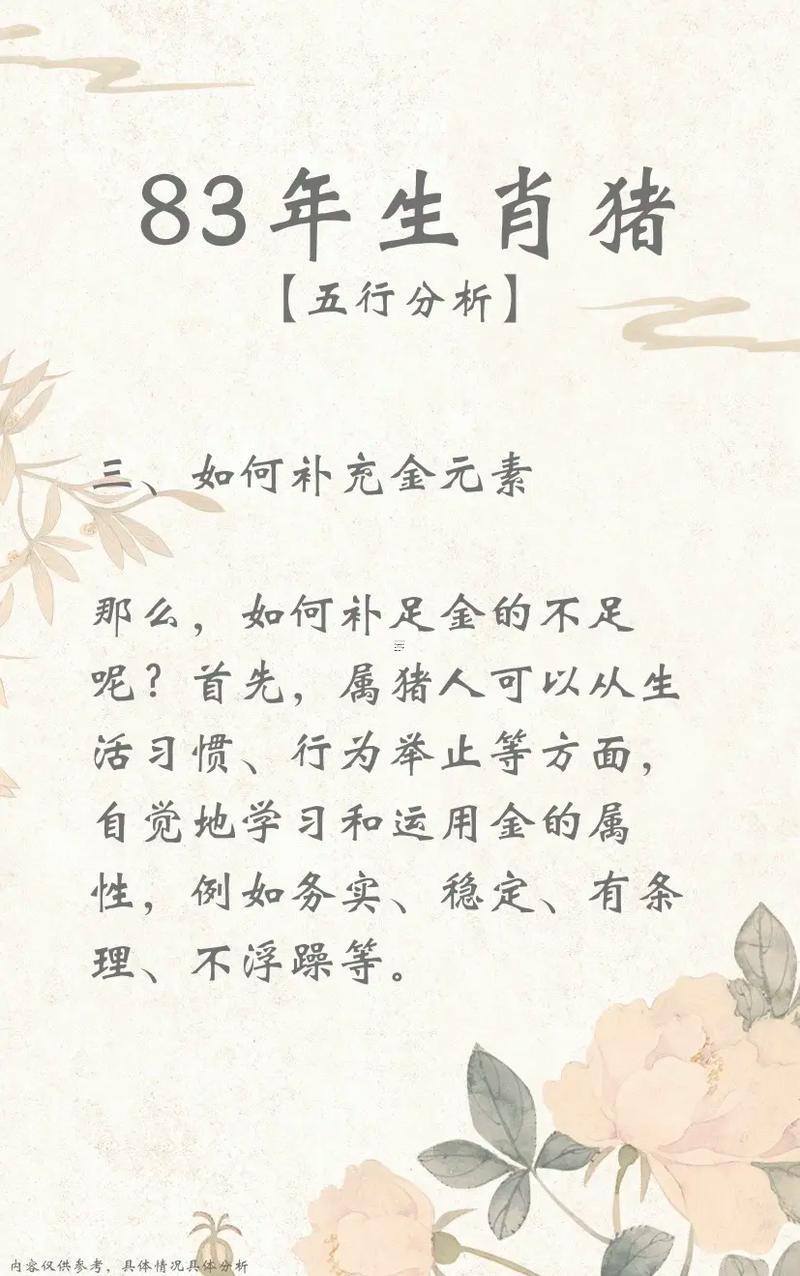 83年生肖猪
【五行分析】
三、如何补充金元素
那么，如何补足金的不足
呢？首先，属猪人可以从生
活习惯、行为举止等方面，
自觉地学习和运用金的属
性，例如务实、稳定、有条
理、不浮躁等。
内容仅供参考，具体情况具体分析